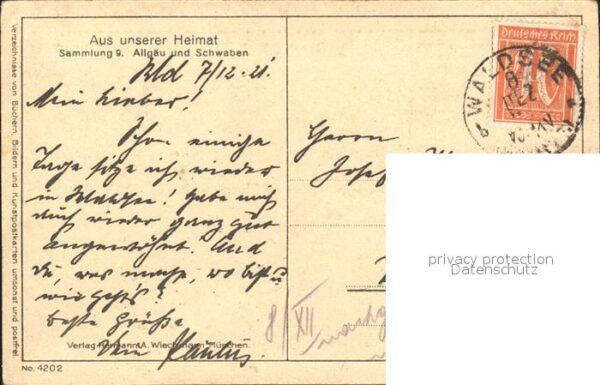 Aus unserer Heimat
Sammlung 9. Allgäu und Schwaben
Wld 7/12. 21.
Mein Lieber!
Schon einige
Tage sitze ich wieder
in Waldsee! Habe mich
auch wieder ganz gut
angewöhnt. Und
Du, was machst, wo bist u.
wie geht's?
Beste Grüße
Dein
Verlag Hermann A. Wiechmann München.
No. 4202
Verzeichnisse von Büchern, Bildern und Kunstpostkarten umsonst und postfrei
Herrn
Josef
8/XII
Deutsches Reich
WALDSEE
privacy protection
Datenschutz